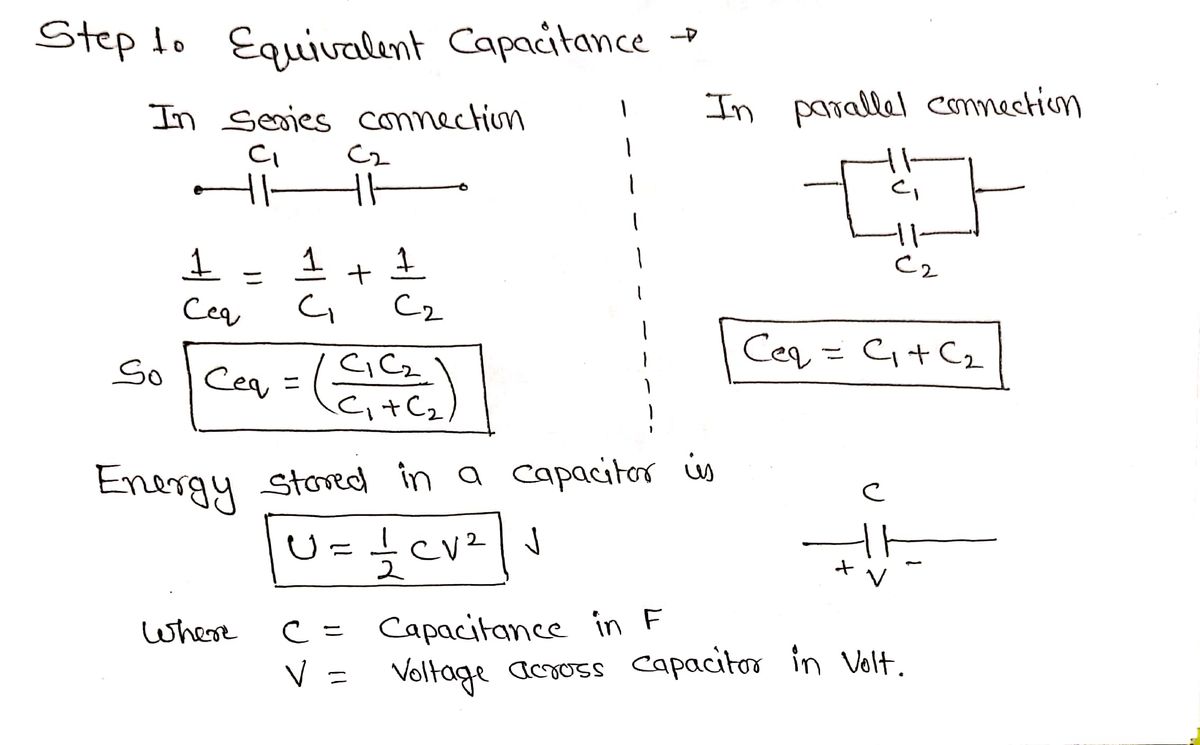 Step 1. Equivalent Capacitance →
In series connection
C1 C2
1/Ceq = 1/C1 + 1/C2
So Ceq = (C1C2/C1+C2)
In parallel connection
C1
C2
Ceq = C1 + C2
Energy stored in a capacitor is
U = 1/2 CV² J
C
+ V -
Where C = Capacitance in F
V = Voltage across capacitor in Volt.